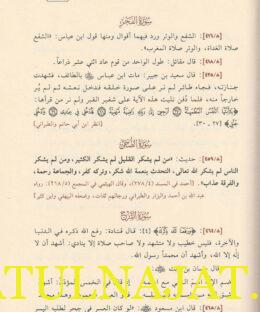 سورة الفجر
[٥٦٦/٨]: الشفع والوتر ورد فيهما أقوال ومنها قول ابن عباس: «الشفع
صلاة الغداة، والوتر صلاة المغرب».
قال مقاتل: طول الواحد من قوم عاد اثني عشر ذراعاً.
قال سعيد بن جبير: مات ابن عباس بالطائف، فشهدت
جنازته، فجاء طائر لم نر على صورة خلقته فدخل نعشه ثم لم ير
خارجاً منه، فلما دفن تليت هذه الآية على شفير القبر ولم نر من قرأها:
[٢٧ ـ ٣٠]. [انظر ابن أبي حاتم والطبراني]
سورة الضحى
حديث: «من لم يشكر القليل لم يشكر الكثير، ومن لم يشكر
الناس لم يشكر الله تعالى، التحدث بنعمة الله شكر، وتركه كفر، والجماعة رحمة،
والفرقة عذاب». [أحمد في المسند (٢٧٨/٤)، وقال الهيثمي في المجمع (٢١٨/٥): رواه
عبد الله بن أحمد والبزار والطبراني ورجالهم ثقات، وضعفه البيهقي وابن كثير]
سورة الشرح
﴿ورفعنا لك ذكرك﴾ [٤]: قال قتادة: رفع الله ذكره في الدنيا
والآخرة، فليس خطيب ولا متشهد ولا صاحب صلاة إلا ينادي: أشهد أن لا
إله إلا الله، وأشهد أن محمداً رسول الله.
قال حسان بن ثابت
المؤذن: أشهد
قال ابن مسعود